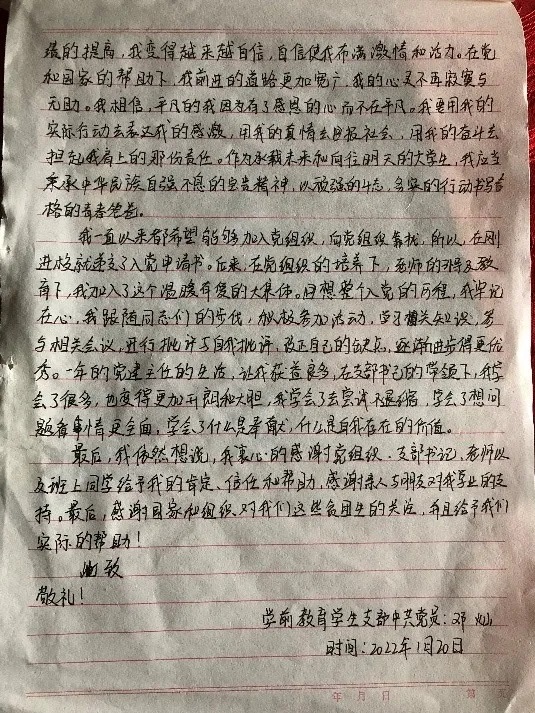 的提高，我变得越来越自信，自信使我布满激情和活力。在党
和国家的帮助下，我前进的道路更加宽广，我的心灵不再寂寞与
无助。我相信，平凡的我因为有了感恩的心而不在平凡。我要用我的
实际行动去表达我的感激，用我的真情去回报社会，用我的奋斗去
担起我肩上的那份责任。作为承载未来和向往明天的大学生，我应当
秉承中华民族自强不息的宝贵精神，以顽强的斗志，务实的行动书写合
格的青春答卷。
我一直以来都希望能够加入党组织，向党组织靠拢，所以，在刚
进校就递交了入党申请书。后来，在党组织的培养下，老师的指导及教
育下，我加入了这个温暖有爱的大集体。回想整个入党的历程，我牢记
在心，我跟随同志们的步伐，积极参加活动，学习相关知识，参
与相关会议，进行批评与自我批评，改正自己的缺点，逐渐进步得更优
秀。一年的党建主任的生活，让我获益良多，在支部书记的带领下，我学
会了很多，也变得更加开朗和大胆，我学会了去尝试不退缩，学会了想问
题看事情更全面，学会了什么是奉献，什么是自我存在的价值。
最后，我依然想说，我衷心的感谢党组织、支部书记、老师以
及班上同学给予我的肯定、信任和帮助，感谢亲人与朋友对我学业的支
持。最后，感谢国家和组织对我们这些贫困生的关注，并且给予我们
实际的帮助！
此致
敬礼！
学前教育学生支部中共党员：邓灿
时间：2022年1月20日
年 月 日 第